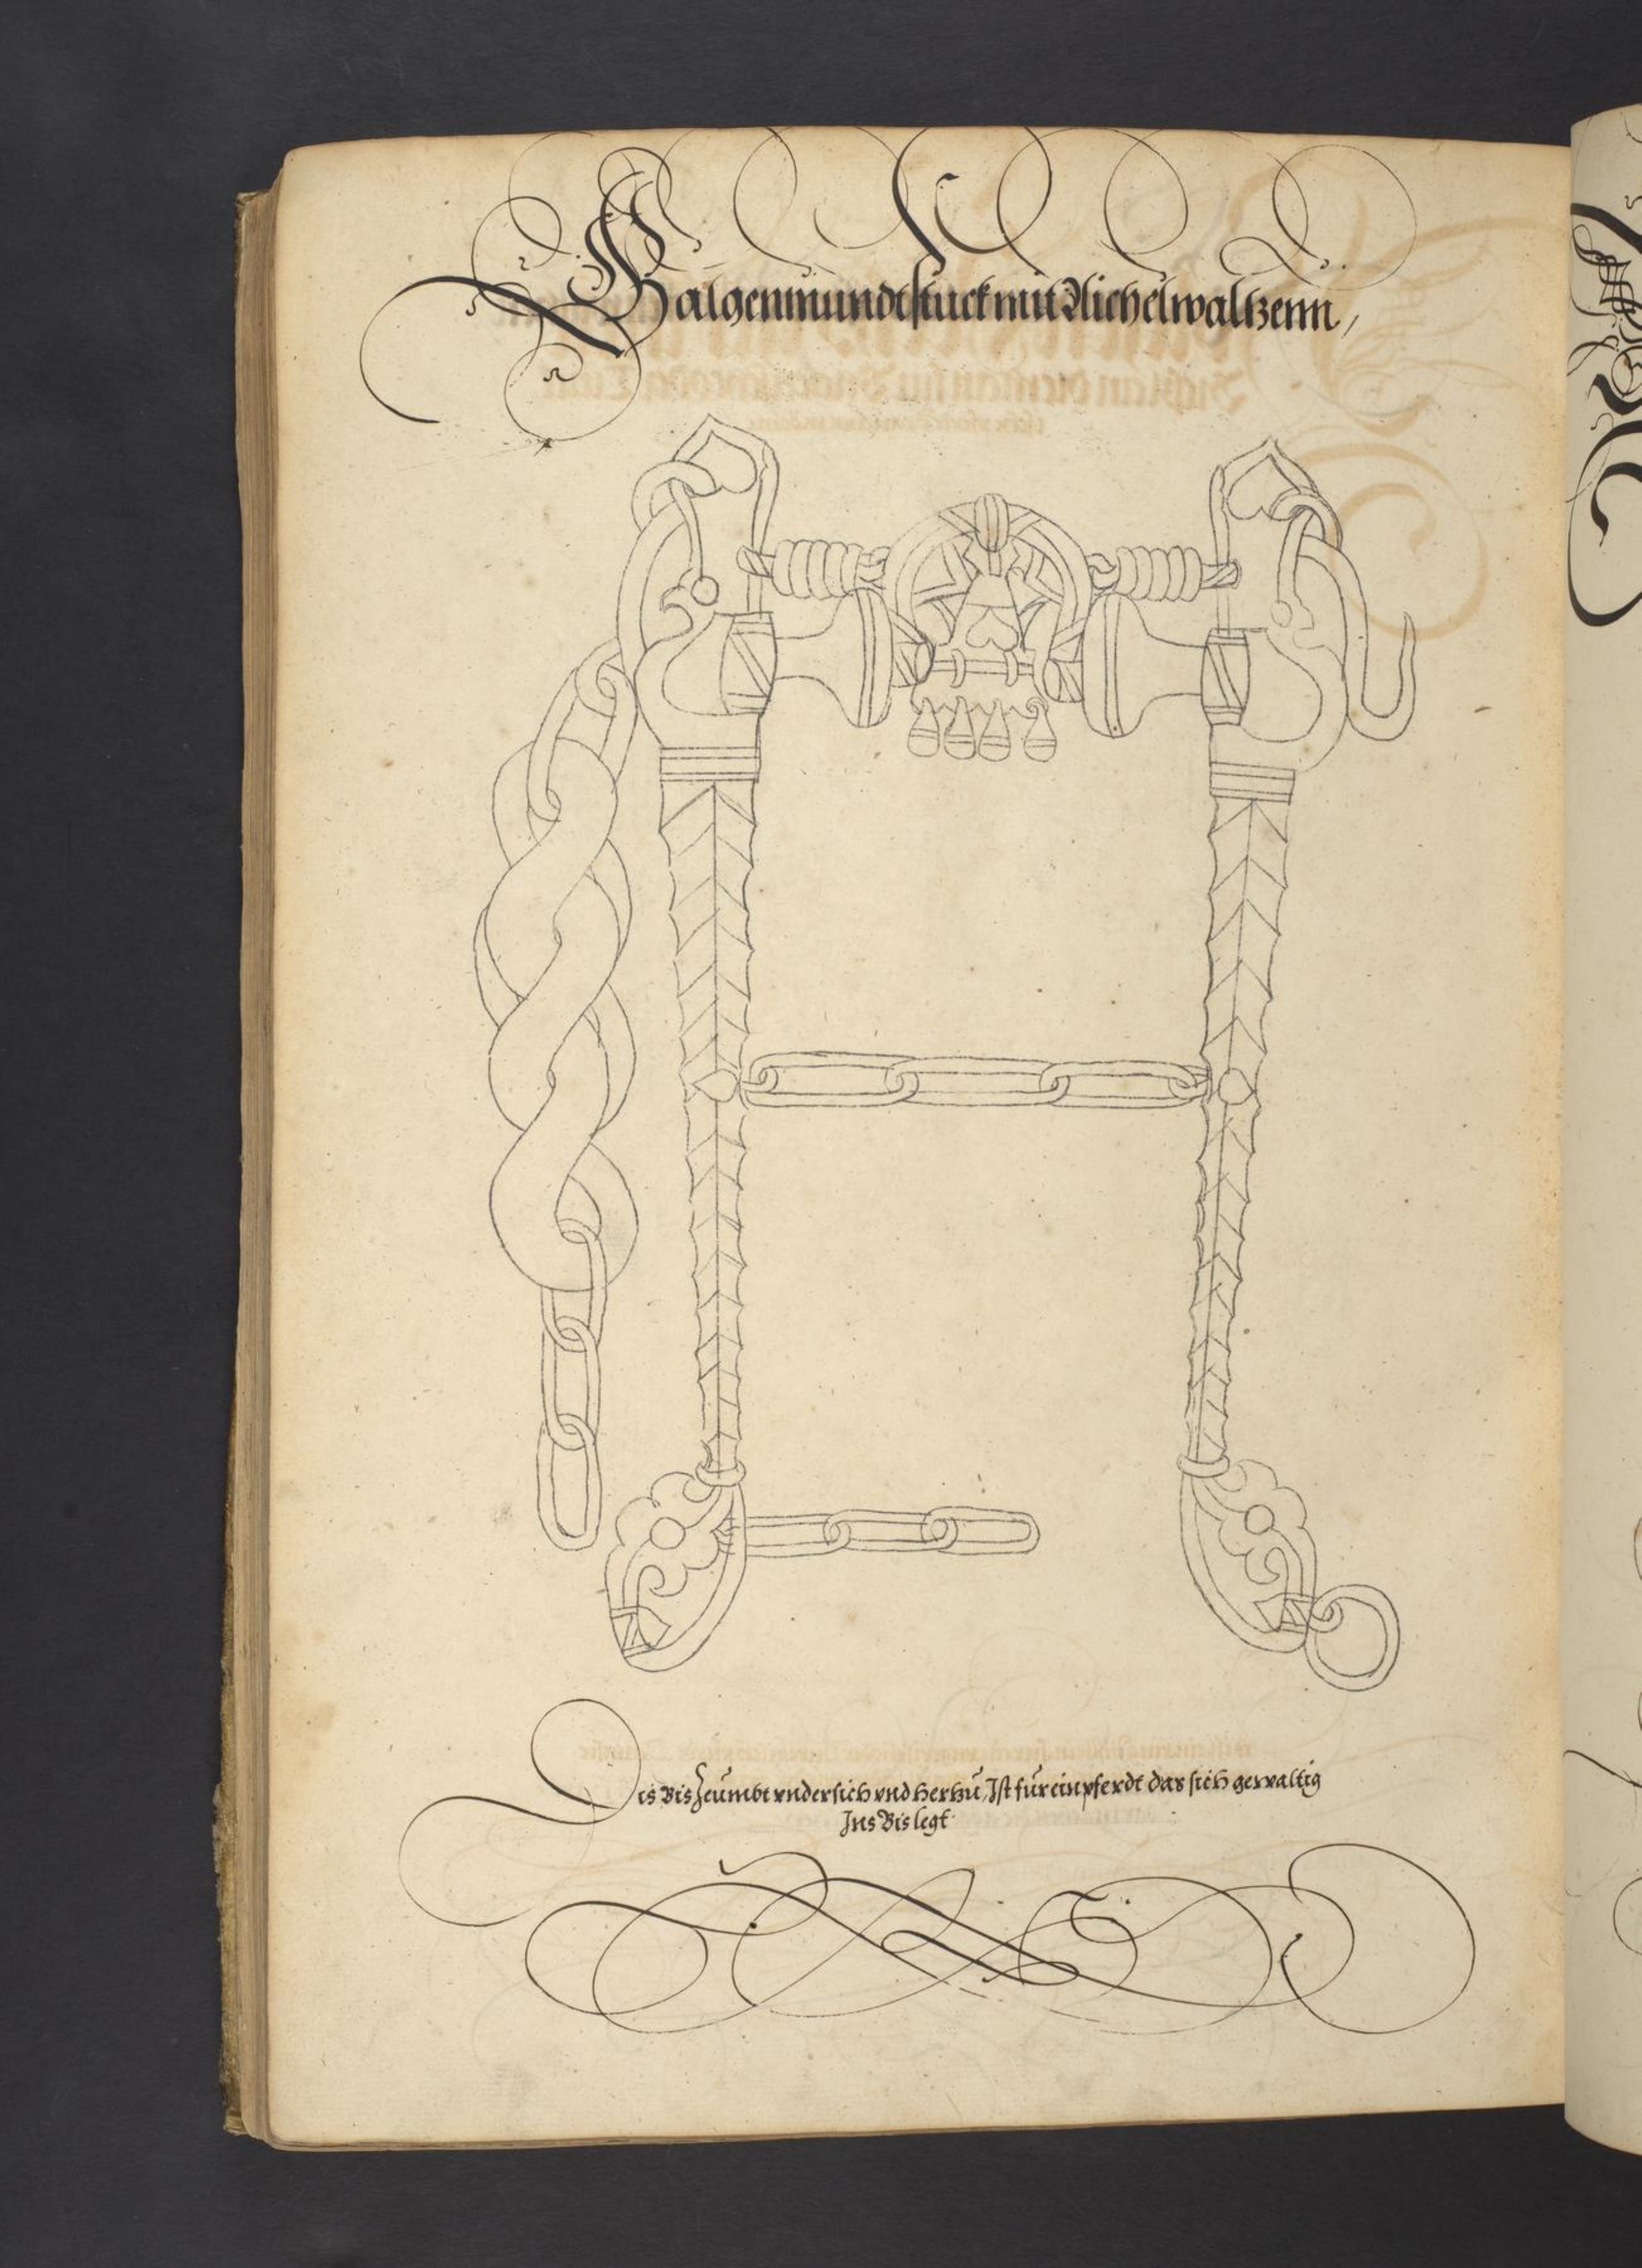 Galgenmundtstuck mit Michelwaltzenn,
Dis Bis Zeumbt vndersich vnd herzu, Ist fur ein pferdt das sich gewaltig
Ins Bis legt